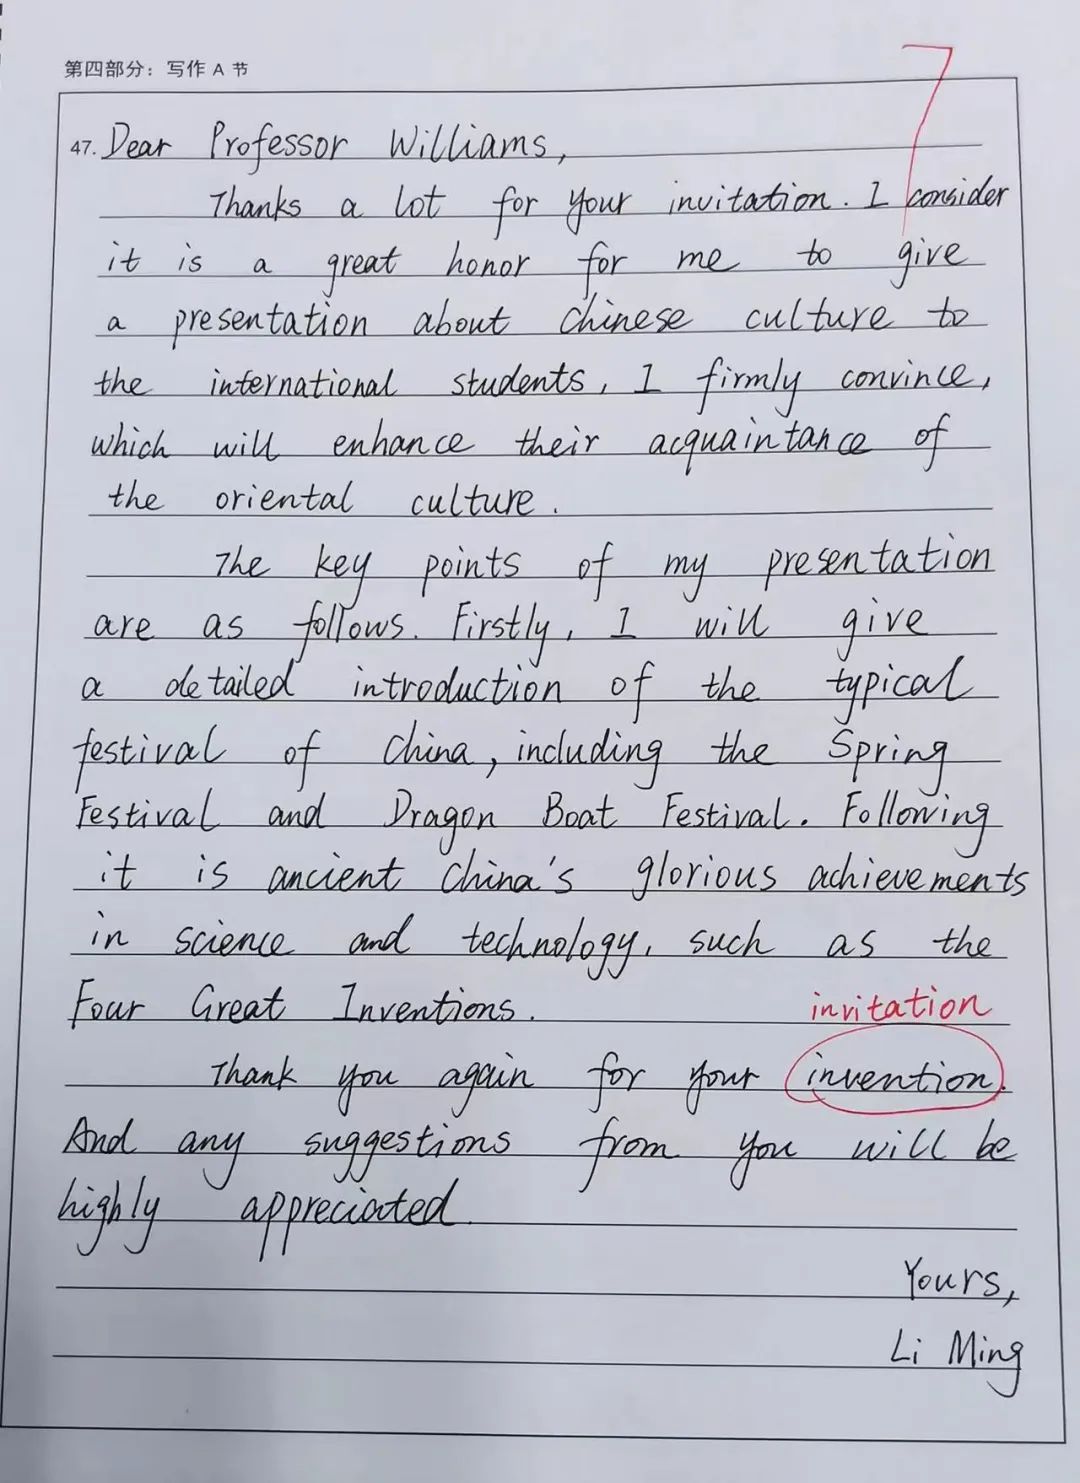 第四部分：写作 A 节
7
47. Dear Professor Williams,
Thanks a lot for your invitation. I consider
it is a great honor for me to give
a presentation about Chinese culture to
the international students, I firmly convince,
which will enhance their acquaintance of
the oriental culture.
The key points of my presentation
are as follows. Firstly, I will give
a detailed introduction of the typical
festival of China, including the Spring
Festival and Dragon Boat Festival. Following
it is ancient China's glorious achievements
in science and technology, such as the
Four Great Inventions.
invitation
Thank you again for your invention.
And any suggestions from you will be
highly appreciated.
Yours,
Li Ming